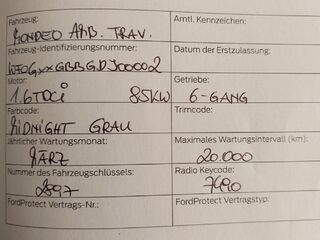 Fahrzeug: Amtl. Kennzeichen:
MONDEO AMB. TRAV.
Fahrzeug-Identifizierungsnummer: Datum der Erstzulassung:
WF0GXXGBBGDJ00002
Motor: Getriebe:
1.6TDCi 85KW 6-GANG
Farbcode: Trimcode:
MIDNIGHT GRAU
Jährlicher Wartungsmonat: Maximales Wartungsintervall (km):
MÄRZ 20.000
Nummer des Fahrzeugschlüssels: Radio Keycode:
2897 7490
FordProtect Vertrags-Nr.: FordProtect Vertragstyp: